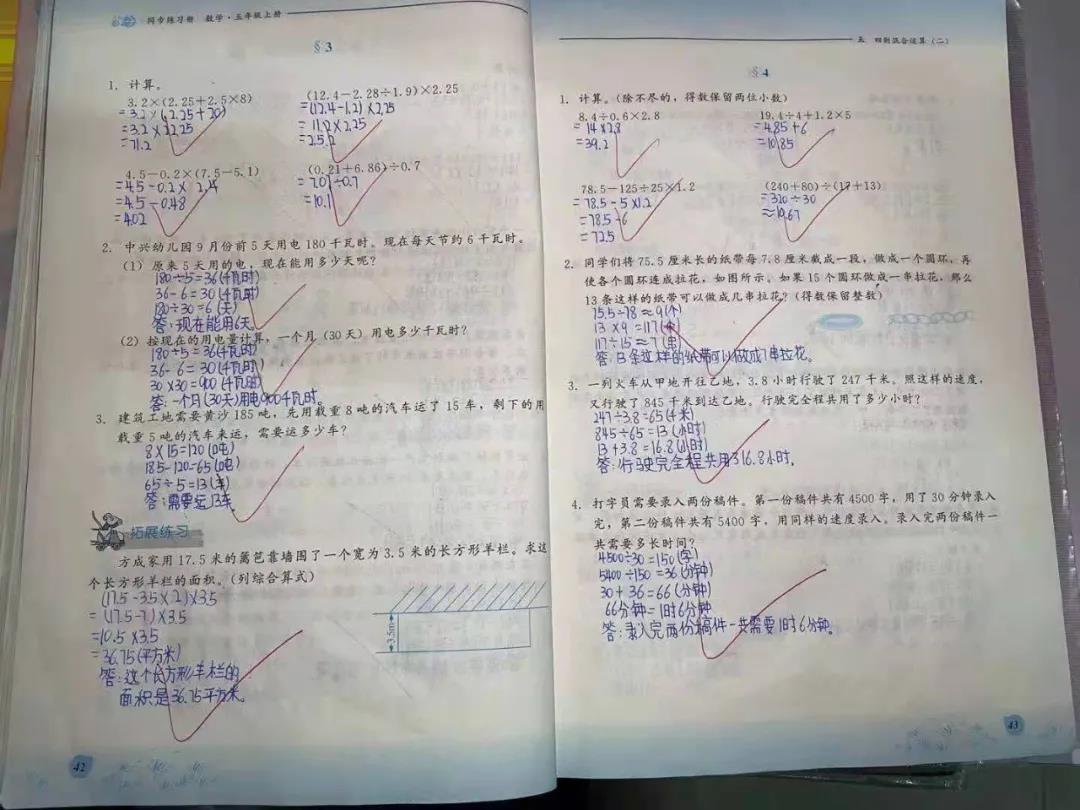 同步练习册 数学·五年级上册
§3
1. 计算。
3.2×(2.25+2.5×8) (12.4-2.28÷1.9)×2.25
=3.2×(2.25+20) =(12.4-1.2)×2.25
=3.2×22.25 =11.2×2.25
=71.2 =25.2
4.5-0.2×(7.5-5.1) (0.21+6.86)÷0.7
=4.5-0.2× =7.07÷0.7
=4.5÷0.48 =10.1
=4.02
2. 中兴幼儿园9月份前5天用电180千瓦时。现在每天节约6千瓦时。
(1) 原来5天用的电，现在能用多少天呢？
180÷5=36(千瓦时)
36-6=30(千瓦时)
180÷30=6(天)
答:现在能用6天。
(2) 按现在的用电量计算，一个月(30天)用电多少千瓦时？
180÷5=36(千瓦时)
36-6=30(千瓦时)
30×30=900(千瓦时)
答:一个月(30天)用电900千瓦时。
3. 建筑工地需要黄沙185吨，先用载重8吨的汽车运了15车，剩下的用
载重5吨的汽车来运，需要运多少车？
8×15=120(吨)
185-120=65(吨)
65÷5=13(车)
答:需要运13车
拓展练习
方成家用17.5米的篱笆靠墙围了一个宽为3.5米的长方形羊栏。求这
个长方形羊栏的面积。(列综合算式)
(17.5-3.5×2)×3.5
=(17.5-7)×3.5
=10.5×3.5
=36.75(平方米)
答:这个长方形羊栏的
面积是36.75平方米。
3.5m
42
五 四则混合运算(二)
§4
1. 计算。(除不尽的，得数保留两位小数)
8.4÷0.6×2.8 19.4÷4+1.2×5
=14×2.8 =4.85+6
=39.2 =10.85
78.5-125÷25×1.2 (240+80)÷(17+13)
=78.5-5×1.2 =320÷30
=78.5-6 ≈10.67
=72.5
2. 同学们将75.5厘米长的纸带每7.8厘米截成一段，做成一个圆环，再
使各个圆环连成拉花，如图所示。如果15个圆环做成一串拉花，那么
13条这样的纸带可以做成几串拉花？(得数保留整数)
75.5÷7.8≈9(个)
13×9=117(个)
117÷15≈7(串)
答:13条这样的纸带可以做成7串拉花。
3. 一列火车从甲地开往乙地，3.8小时行驶了247千米。照这样的速度，
又行驶了845千米到达乙地。行驶完全程共用了多少小时？
247÷3.8=65(千米)
845÷65=13(小时)
13+3.8=16.8(小时)
答:行驶完全程共用316.8小时.
4. 打字员需要录入两份稿件。第一份稿件共有4500字，用了30分钟录入
完，第二份稿件共有5400字，用同样的速度录入。录入完两份稿件一
共需要多长时间？
4500÷30=150(字)
5400÷150=36(分钟)
30+36=66(分钟)
66分钟=1时6分钟
答:录入完两份稿件一共需要1时6分钟。
43